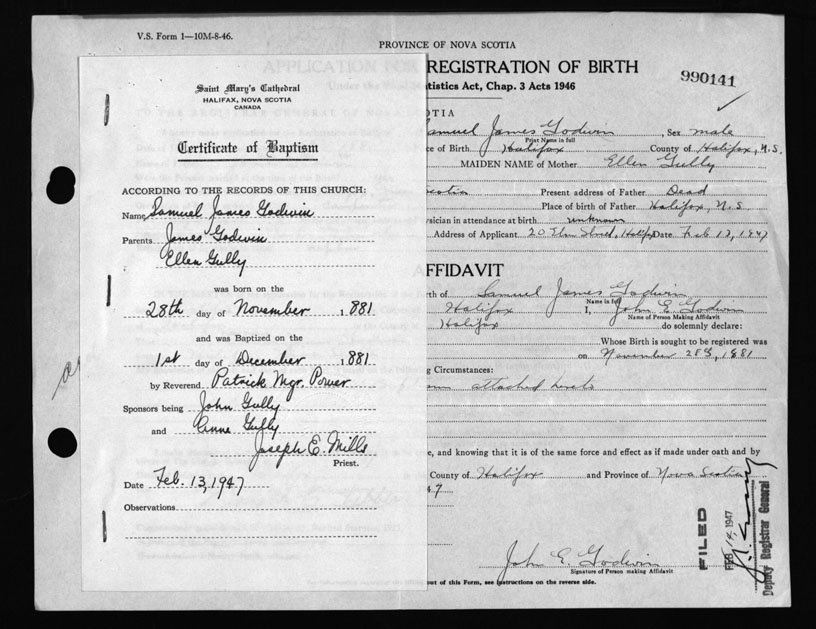 V.S. Form 1—10M-8-46.
PROVINCE OF NOVA SCOTIA
REGISTRATION OF BIRTH
990141
tistics Act, Chap. 3 Acts 1946
Saint Mary's Cathedral
HALIFAX, NOVA SCOTIA
CANADA
Certificate of Baptism
ACCORDING TO THE RECORDS OF THIS CHURCH:
Name Samuel James Godwin
Parents James Godwin
Ellen Gully
was born on the
28th day of November 1881
and was Baptized on the
1st day of December 1881
by Reverend Patrick Mgr. Power
Sponsors being John Gully
and Anne Gully
Joseph E. Mills
Priest.
Date Feb. 13, 1947
Observations
OTIA
amuel James Godwin, Sex male
Print Name in full
ce of Birth Halifax County of Halifax, N.S.
MAIDEN NAME of Mother Ellen Gully
Scotia Present address of Father Dead
Place of birth of Father Halifax, N.S.
ysician in attendance at birth unknown
Address of Applicant 20 Elm Street, Halifax Date Feb 13, 1947
AFFIDAVIT
rth of Samuel James Godwin
Name in full
Halifax I, John E. Godwin
Name of Person Making Affidavit
Halifax do solemnly declare:
Whose Birth is sought to be registered was
on November 28th, 1881
g Circumstances:
attached hereto
e, and knowing that it is of the same force and effect as if made under oath and by
County of Halifax and Province of Nova Scotia
47
John E. Godwin
Signature of Person making Affidavit
out of this Form, see instructions on the reverse side.
FILED
FEB 14, 1947
Deputy Registrar General